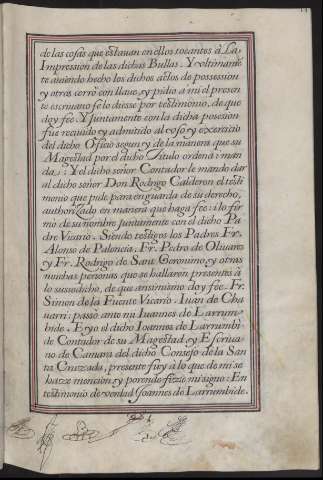 de las cosas que estauan en ellos tocantes à La
Impression de las dichas Bullas. Y vltimamẽ
te auiendo hecho los dichos actos de possession
y otros cerro con llaue, y pidio a mi el presen
te escriuano se lo diesse por testimonio, de que
doy fee. Y Juntamente con la dicha posesion
fue reciuido y admitido al vso y exercicio
del dicho Oficio segun y de la manera que su
Magestad por el dicho Titulo ordena i man
da: Y el dicho señor Contador le mando dar
al dicho señor Don Rodrigo Calderon el testi
monio que pide para enguarda de su derecho,
authorizado en manera que haga fee: i lo fir
mò de su nombre juntamente con el dicho Pa
dre Vicario. Siendo testigos los Padres Fr.
Alonso de Palencia. Fr. Pedro de Oliuares
y Fr. Rodrigo de Sant Geronimo y otras
muchas personas que se hallaron presentes à
lo susodicho, de que ansimismo doy fee. Fr.
Simon de la Fuente Vicario. Iuan de Cha
uarri: passò ante mi Iuannes de Larrum
bide. E yo el dicho Ioannes de Larrumbi
de Contador de su Magestad y Escriua
no de Camara del dicho Consejo de la San
ta Cruzada, presente fuy a lo que de mi se
haze mencion y porende fize mi signo: En
testimonio de verdad Joannes de Larrumbide.